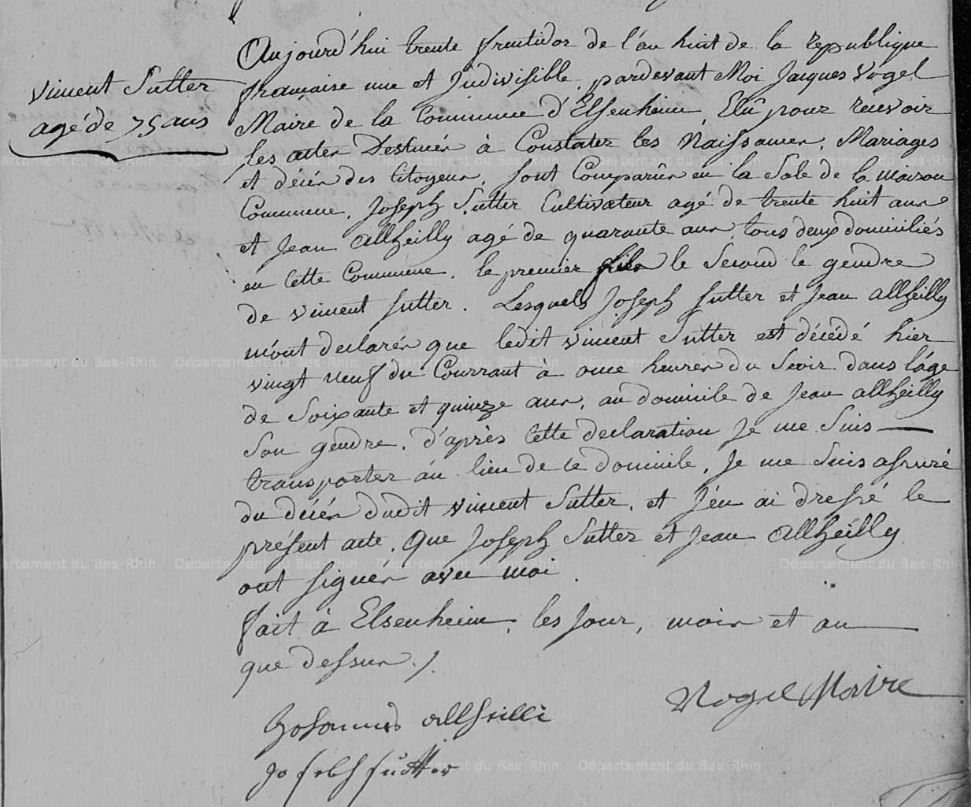 Vincent Sutter
agé de 75 ans
Aujourd'hui trente fructidor de l'an huit de la republique
française une et Jndivisible, pardevant Moi Jacques Vogel
Maire de la Commune d'Elsenheim, Elû pour recevoir
les actes Destinés à Constater les Naissances, Mariages
et décés des Citoyens, sont Comparûs en la Sale de la maison
Commune, Joseph Sutter Cultivateur agé de trente huit ans
et Jean allheilly agé de quarante ans, tous deux domiciliés
en cette Commune, le premier fils le second le gendre
de vincent Sutter. Lesquels Joseph Sutter et Jean allheilly
m'ont declarés que ledit vincent Sutter est décédé hier
vingt neuf du Courrant à onze heures du Soir dans l'âge
de Soixante et quinze ans, au domicile de Jean allheilly
Son gendre, d'après cette declaration Je me Suis —
transporter au lieu de ce domicile, Je me Suis assuré
du décés dudit vincent Sutter, et J'en ai dressé le
présent acte, Que Joseph Sutter et Jean allheilly
ont signés avec moi.
fait à Elsenheim, les Jour, mois et an —
que dessus./.
Vogel Maire
Johannes allheilli
Joseph sutter
Département du Bas-Rhin